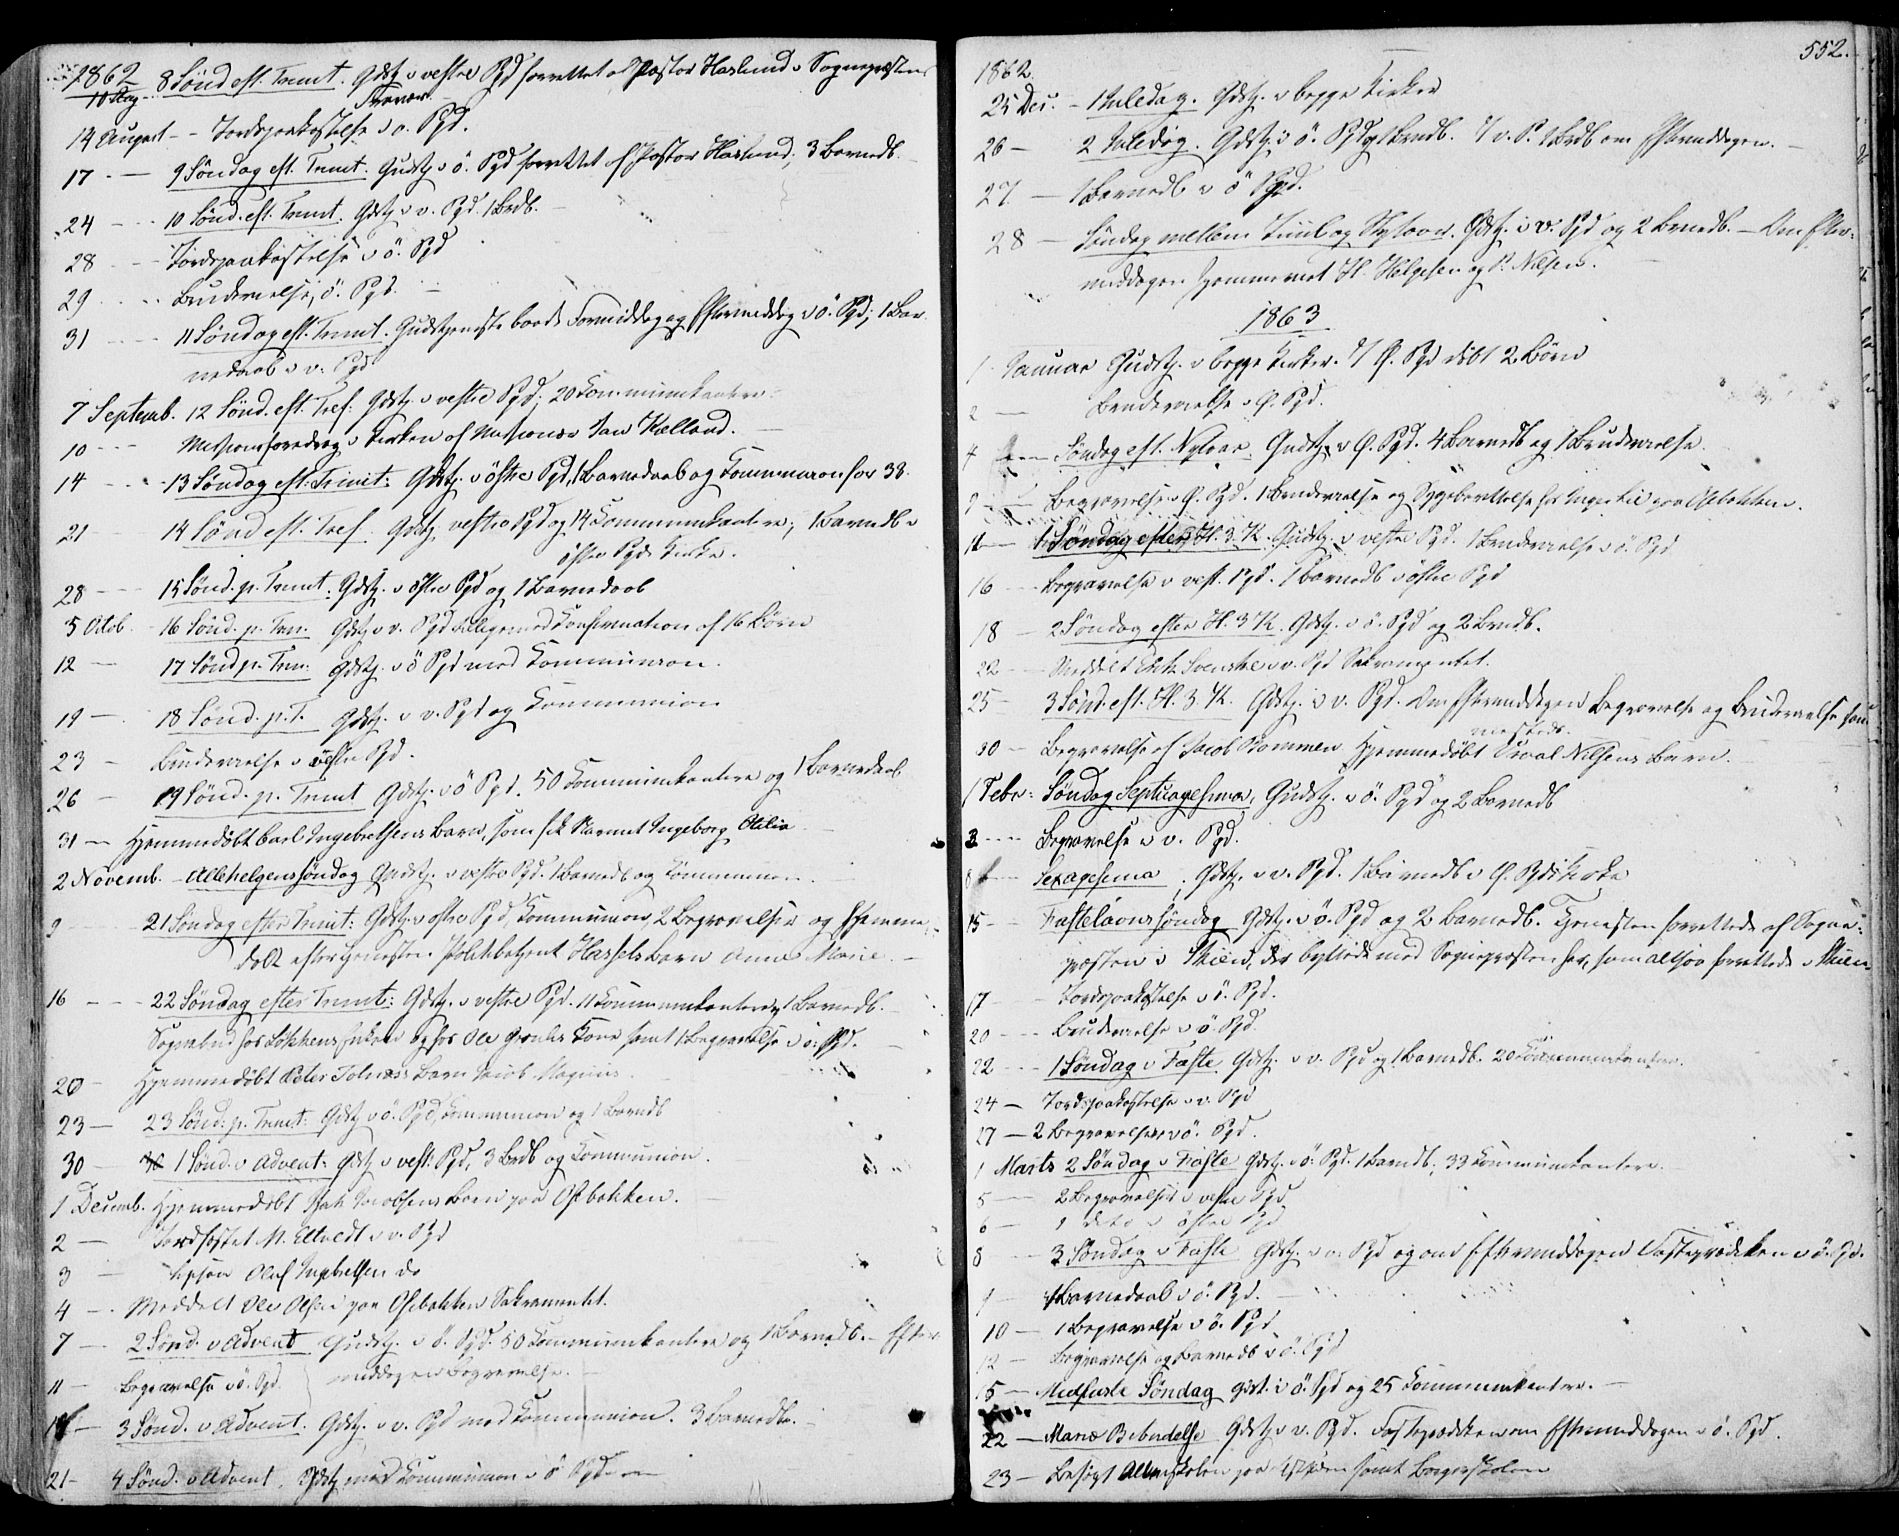 1862
10 Aug. 8 Sønd eft. Trinit. Gdstj. i vestre Pgd forrettet af Pastor Haslund i Sognepræstens
Fravær.
14 August - Jordspaakastelse i v. Pgd.
17 - 9 Søndag eft. Trinit. Gudstj. i ö. Pgd forrettet af Pastor Haslund, 3 Barnedb.
24 - 10 Sønd. eft. Trinit. Gdstj. i v. Pgd. 1 Brdb.
28 - Jordspaakastelse i ö. Pgd
29 - Brudevielse, ö. Pgd.
31 - 11 Søndag eft. Trinit. Gudstjeneste baade Formiddag og Eftermiddag i ö. Pgd; 1 Bar-
nedaab i v. Pgd
7 Septemb. 12 Sønd. eft. Tref. Gdstj. i vestre Pgd; 20 Kommunikantere.
10 - Missionsforedrag i Kirken af Missionær Jan Kielland.
14 - 13 Søndag eft. Trinit: Gdstj. i östre Pgd, 1 Barnedaab og Kommunion for 38.
21 - 14 Sønd eft. Tref. Gdstj. vestre Pgd og 14 Kommunikantere; 1 Barnedb i
östre Pgds Kirke.
28 - 15 Sønd. p. Trinit: Gdstj. i östre Pgd og 1 Barnedaab
5 Octob. 16 Sønd. p. Trin. Gdstj. i v. Pgd tilligemed Konfirmation af 16 Børn
12 - 17 Sønd p. Trin. Gdstj. i ö Pgd med Kommunion.
19 - 18 Sønd. p. T. Gdstj. i v. Pgd og Kommunion
23 - Brudevielse i östre Pgd.
26 - 19 Sønd. p. Trinit Gdstj. i ö Pgd. 50 Kommunikantere og 1 Barnedaab
31 - Hjemmedøbt Carl Ingebretsens Barn, som fik Navnet Ingeborg Otilia
2 Novemb. - Allehelgenssöndag Gudstj. i vestre Pgd. 1 Barnedb og Kommunion
9 - 21 Søndag efter Trinit: Gdstj. i östre Pgd, Kommunion, 2 Begravelser og Hjemme-
døbt efter Tjenesten Politibetjent Hassels Barn Anne Marie.
16 - 22 Søndag efter Trinit: Gdstj. i vestre Pgd. 11 Kommunikantere, 1 Barnedb.
Sognebud hos Enken og hos Ole Kone samt 1 Begravelse i ö. Pgd.
20 - Hjemmedøbt Peter Barn Jacob Magnus.
23 - 23 Sønd. p. Trinit: Gdstj. i ö. Pgd, Kommunion og 1 Barnedb
30 - 1 Sønd. i Advent: Gdstj. i vest. Pgd, 3 Brdb og Kommunion.
1 Decemb. Hjemmedøbt Isak Jacobsens Barn paa Osebakken.
2 - Jordfæstet M. Ettvedt i v. Pgd
3 - ligesom Oluf Ingebretsen do
4 - Meddelt Ole Olsen paa Osebakken Sakramentet.
7 - 2 Sønd. i Advent Gudstj. i ö. Pgd. 50 Kommunikantere og 1 Barnedb. - Efter
middagen Begravelse.
11 - Begravelse i ö. Pgd
14 - 3 Sønd. i Advent. Gdstj. i v. Pgd med Kommunion. 3 Barnedb.
21 - 4 Sønd. i Advent. Gdstj. med Kommunion i ö Pgd.
552.
1862
25 Dec. - 1 Juledag. Gdstj. i begge Kirker
26 - 2 Juledag. Gdstj. i ö. Pgd, 1 Barnedb. I v. P. 1 Brdb om Eftermiddagen.
27 - 1 Barnedb i ö Pgd.
28 - Søndag mellem Juul og Nytaar. Gdstj. i v. Pgd og 2 Barnedb. - Om Efter-
middagen hjemmeviet H. Helgesen og P. Nilsen.
1863
1 Januar Gudstj. i begge Kirker. I Ö. Pgd döbt 2 Börn
2 - Brudevielse i Ö. Pgd.
4 - Søndag eft. Nytaar. Gudstj. i Ö. Pgd. 4 Barnedb og 1 Brudevielse.
9 - Begravelse i Ö. Pgd. 1 Brudevielse og Sygeberettelse for paa Osebakken.
11 - 1 Søndag efter H. 3. K. Gudstj. i vestre Pgd. 1 Brudevielse i ö. Pgd
16 - Begravelse i vest. Pgd. 1 Barnedb i östre Pgd
18 - 2 Søndag efter H. 3 K. Gdstj. i ö. Pgd og 2 Brndb.
22 - Meddelt Svenske i v. Pgd Sakramentet.
25 - 3 Sønd. eft. H. 3. K. Gdstj. i v. Pgd. Om Eftermiddagen Begravelse og Brudevielse sam-
mesteds.
30 - Begravelse af Jacob Rommen. Hjemmedøbt Nilsens Barn.
1 Febr: Søndag Septuagesima, Gudstj. i ö. Pgd og 2 Barnedb
3 - Begravelse i v. Pgd.
8 - Sexagesima, Gdstj. i v. Pgd. 1 Barnedb i Ö. Pgds Kirke
15 - Fastelavnssøndag Gdstj. i ö. Pgd og 2 Barnedb. Tjenesten forrettedes af Sogne-
præsten i Skien, der byttede med Sognepræsten her, som altsaa forrettede i Skien.
17 - Jordspaakastelse i ö. Pgd.
20 - Brudevielse i ö. Pgd.
22 - 1 Søndag i Faste Gdstj. i v. Pgd og 1 Barnedb. 20 Kommunikantere.
24 - Jordspaakastelse i v. Pgd
27 - 2 Begravelser i ö. Pgd.
1 Marts 2 Søndag i Faste Gdstj. i ö. Pgd. 1 Barndb; 33 Kommunikantere.
5 - 2 Begravelser i vestre Pgd
6 - 1 deto i östre Pgd
8 - 3 Søndag i Faste Gdstj. i v. Pgd og om Eftermiddagen Fasteprædiken i ö. Pgd.
9 - 1 Barnedaab i ö. Pgd.
10 - 1 Begravelse i ö. Pgd
12 - Begravelse og Barnedb i ö. Pgd
15 - Midfaste Søndag Gdst. i ö. Pgd og 25 Kommunikantere.
22 - Mariæ Bebudelse Gdstj. i v. Pgd. Fasteprædiken om Eftermiddagen i ö. Pgd.
23 - Besøgt Almueskolen paa samt Borgerskolen